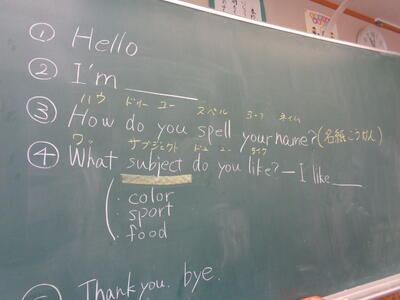 ① Hello
② I'm ______
ハウ ドゥー ユー スペル ユーア ネイム
③ How do you spell your name?(名紙こうかん)
ワッ サブジェクト ドュ ユー ライク
④ What subject do you like?—I like____
・color
・sport
・food
Thank you. bye.